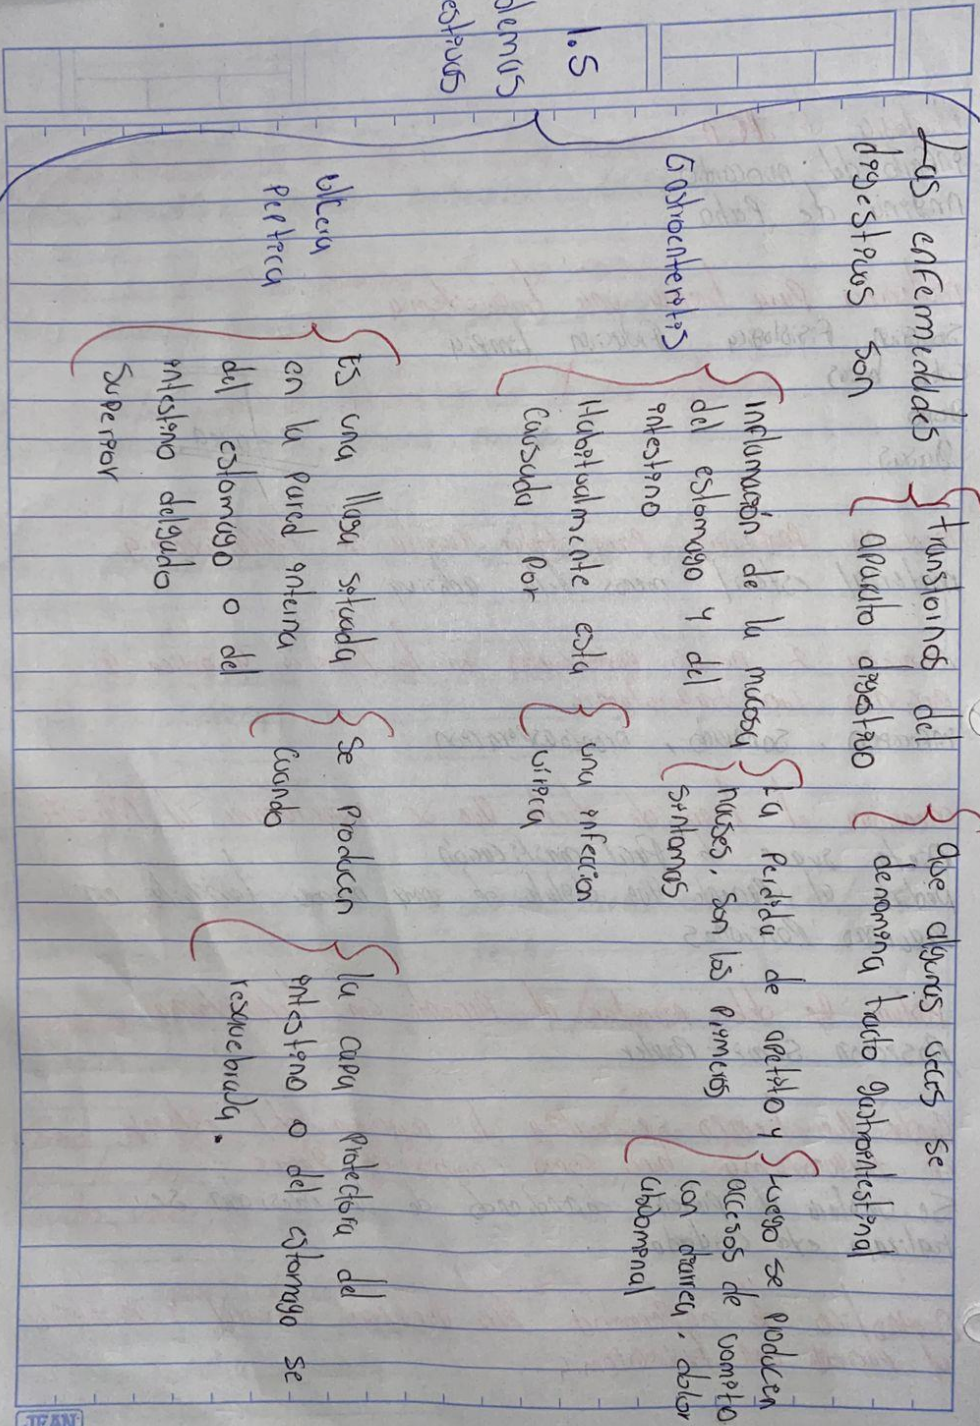 1.5
Las enfermedades
digestivas son
transtornos del
aparato digestivo
que algunas veces se
denomina tracto gastrointestinal
Gastroenteritis
Inflamación de la mucosa
del estomago y del
intestino
La perdida de apetito y
nauses, son los primeros
sintomas
Luego se producen
accesos de vomito
con diarrea, dolor
abdominal
Habitualmente esta
causada por
una infeccion
virica
Ulcera
Peptica
Es una llaga situada
en la pared interna
del estomago o del
intestino delgado
superior
Se producen
cuando
la capa protectora del
intestino o del estomago se
resquebrada.
JEAN